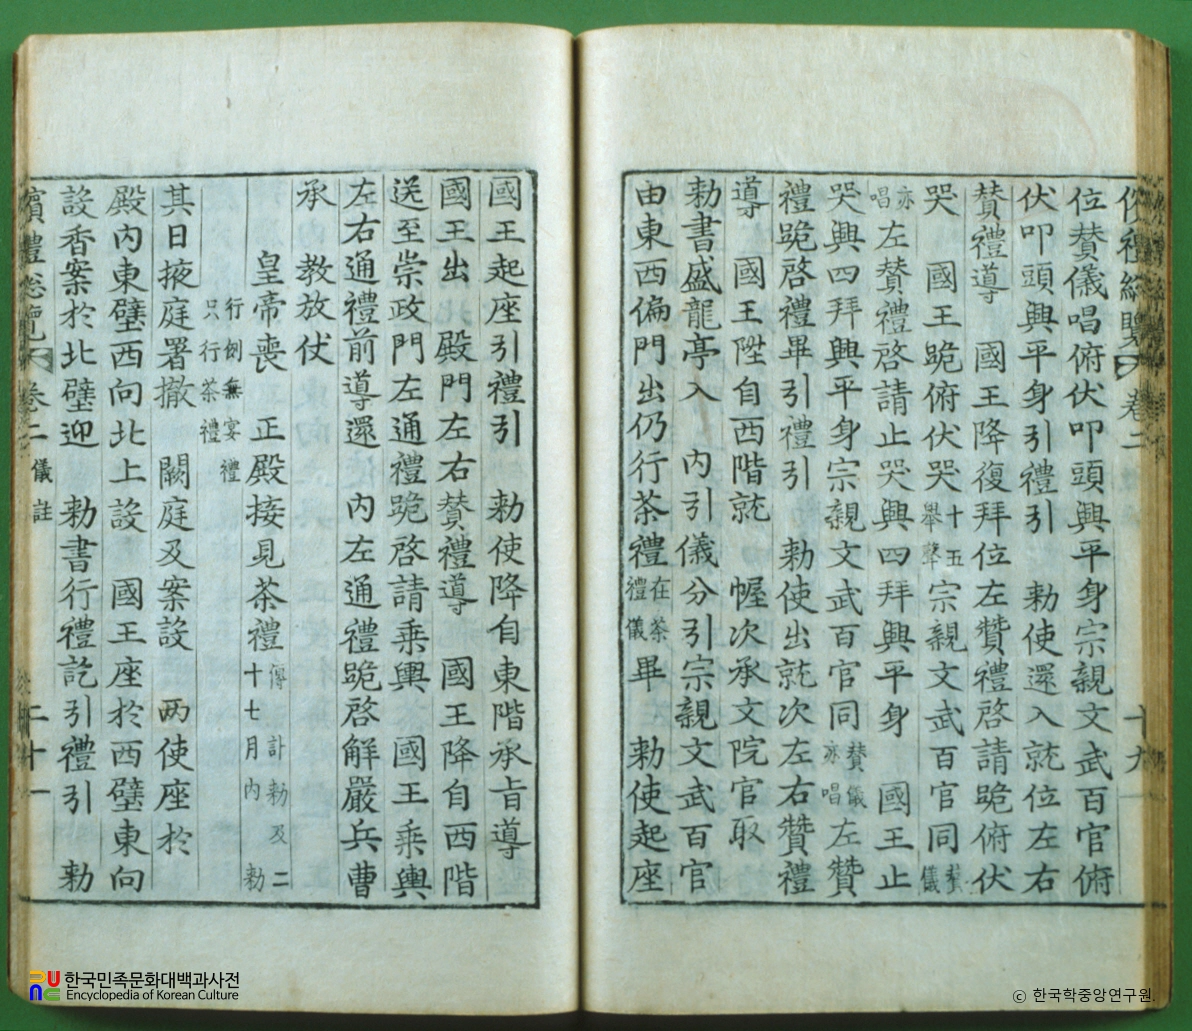 儐禮總覽 卷二 十九
位贊儀唱俯伏叩頭興平身宗親文武百官俯
伏叩頭興平身引禮引 勅使還入就位左右
贊禮導 國王降復拜位左贊禮啓請跪俯伏
哭 國王跪俯伏哭十五擧聲宗親文武百官同贊儀
亦唱左贊禮啓請止哭興四拜興平身 國王止
哭興四拜興平身宗親文武百官同贊儀亦唱左贊
禮跪啓禮畢引禮引 勅使出就次左右贊禮
導 國王陞自西階就 幄次承文院官取
勅書盛龍亭入 內引儀分引宗親文武百官
由東西偏門出仍行茶禮在茶禮儀畢 勅使起座
國王起座引禮引 勅使降自東階承旨導
國王出 殿門左右贊禮導 國王降自西階
送至崇政門左通禮跪啓請乘輿 國王乘輿
左右通禮前導還 內左通禮跪啓解嚴兵曹
承 敎放仗
皇帝喪 正殿接見茶禮傳訃勅及二十七月內 勅
行例無宴禮只行茶禮
其日掖庭署撤 闕庭及案設 兩使座於
殿內東壁西向北上設 國王座於西壁東向
設香案於北壁迎 勅書行禮訖引禮引 勅
儐禮總覽 卷二 儀註 二十一
한국민족문화대백과사전
Encyclopedia of Korean Culture
© 한국학중앙연구원.